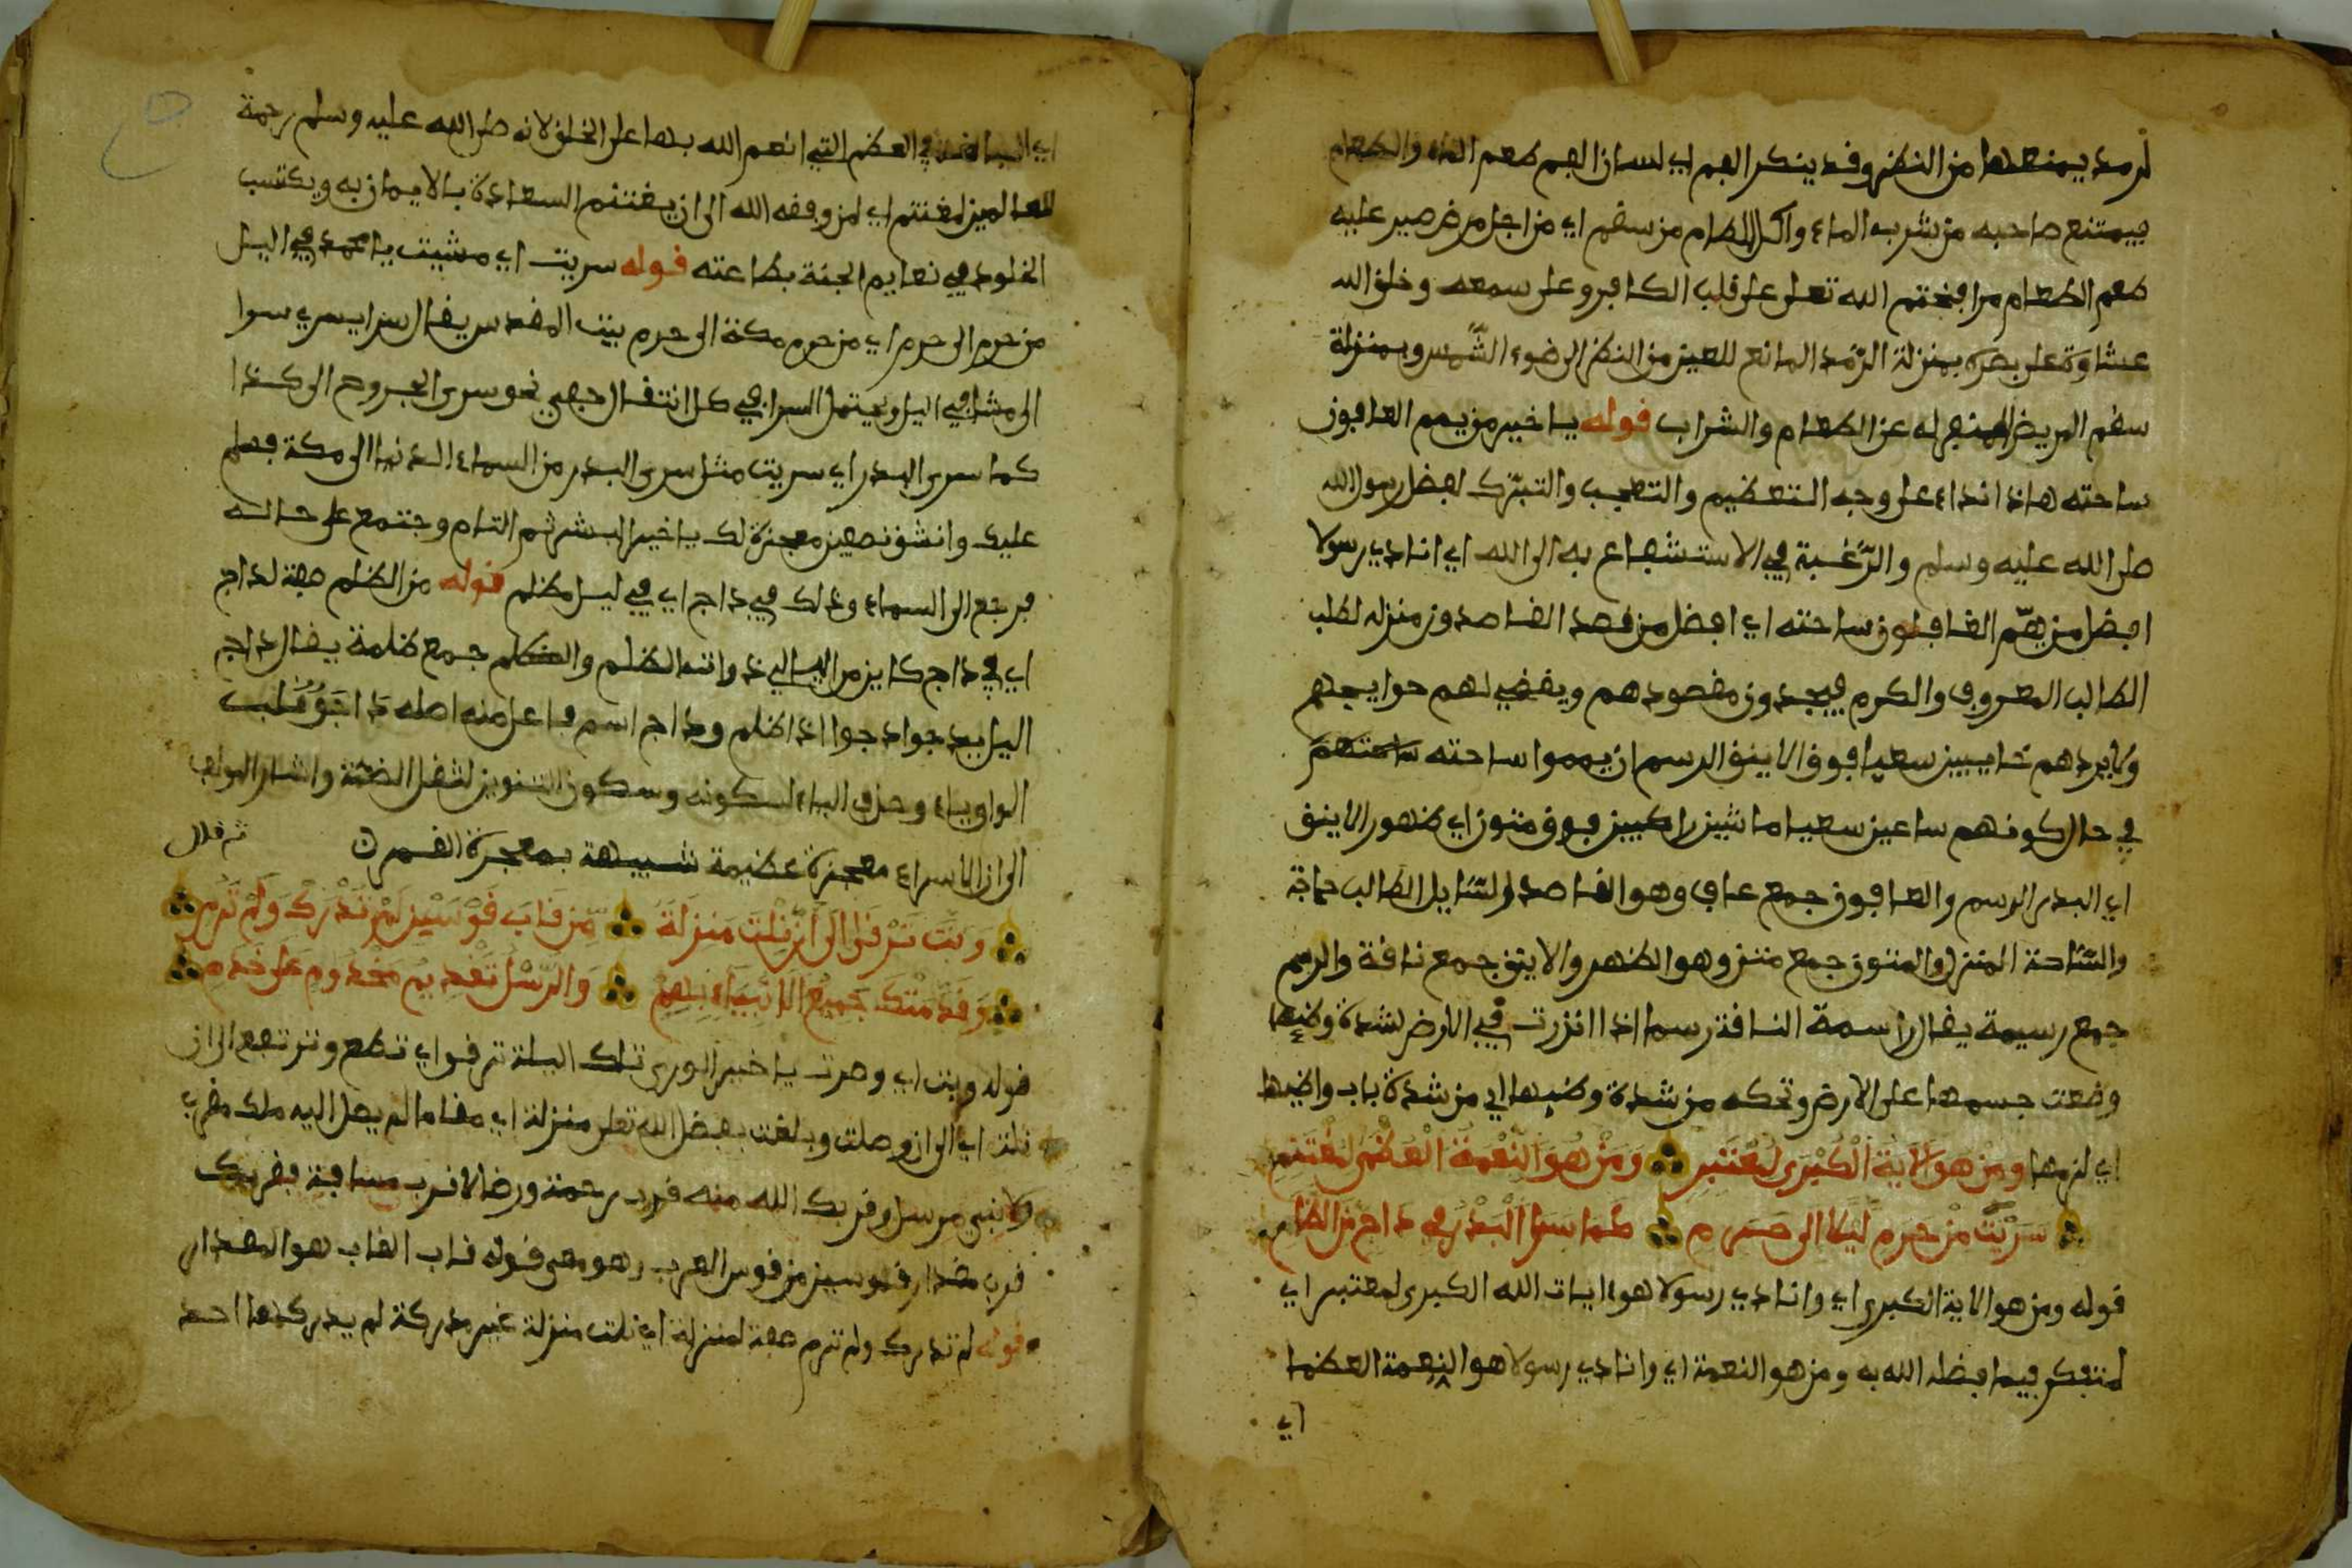 لرمد يمنعها من النظر وقد ينكر الفم اي لسان الفم طعم الماء والطعام
فيمتنع صاحبه من شرب الماء واكل الطعام من سقم اي من اجل مرض صير عليه
طعم الطعام مرا فختم الله تعلى على قلب الكافر وعلى سمعه وخلق الله
عشاوة على بصره بمنزلة الرّمد المانع للعين من النظر الى ضوء الشّمس وبمنزلة
سقم المريض المنع له عن الطعام والشراب قوله يا خير من يمم العافون
ساحته هاذا نداء على وجه التعظيم والتعجب والتبرّك لفضل رسول الله
صلى الله عليه وسلم والرّغبة في الاستشفاع به الى الله اي انادي رسولا
افضل من همّ القافلون ساحته اي افضل من قصد القاصدون منزله لطلب
الطالب المعروف والكرم فيجدون مقصودهم ويقضي لهم حوايجهم
ولا يردهم خايبين سعيا فوق الاينق الرسم ان يمموا ساحته ساحتهم
في حال كونهم ساعين سعيا ماشين راكبين فوق متون اي ظهور الاينق
اي البدر الرسم والعافون جمع عاف وهو القاصد والسّايل الطالب حاجة
والسّاحة المنزل والمتون جمع متن وهو الظهر والاينق جمع ناقة والرسم
جمع رسيمة يقال راسمة الناقة رسما اذا انزرت في الارض لشدة وطئها
وضعت جسمها على الارض وتحكه من شدة وطيها اي من شدة باب واطيها
اي لزمها ومن هو الاية الكبرى لمعتبر ومن هو النّعمة العظمى لمغتنم
سريت من حرم ليلا الى حرم كما سرا البدر في داج من الظلم
قوله ومن هو الاية الكبرى اي وانادي رسولا هو ايات الله الكبرى لمعتبر اي
لمتفكر فيما فضله الله به ومن هو النعمة اي وانادي رسولا هو النعمة العظما
اي
في العظم التي انعم الله بها على الخلق لانه صلى الله عليه وسلم رحمة
للعالمين لمغتنم اي لمن وفقه الله الى ان يغتنم السعادة بالايمان به ويكتسب
الخلود في نعايم الجنة بطاعته قوله سريت اي مشيت يا محمد في اليل
من حرم الى حرم اي من حرم مكة الى حرم بيت المقدس يقال سرا يسري سوا
الى مشا في اليل ويحتمل السرا في كل انتقال جهي نحو سرى الجروح الى كذا
كما سرى البدر اي سريت مثل سرى البدر من السماء الدنيا الى مكة فسلم
عليك وانشق نصفين معجزة لك يا خير البشر ثم التام وجتمع على حاله
فرجع الى السماء وذلك في داج اي في ليل مظلم قوله من الظلم صفة لداج
اي في داج كاين من اليالي ذوات الظلم والظلم جمع ظلمة يقال داج
اليل يدجوا دجوا اذا اظلم وداج اسم فاعل منه اصله داجو قلبت
الواو ياء وحذف الياء لسكونه وسكون التنوين لثقل الضمّة واشار المولف
الى ان الاسراء معجزة عظيمة شبيهة بمعجزة القمر ثم قال
وبتّ ترقا الى ان نلت منزلة من قاب قوسين لم تدرك ولم ترم
وقدّمتك جميع الانبياء بها والرّسل تقديم مخدوم على خدم
قوله وبت اي وصرت يا خير الورى تلك اليلة ترقوا اي تطلع وترتفع الى ان
نلت اي الى ان وصلت وبلغت بفضل الله تعلى منزلة اي مقاما لم يصل اليه ملك مقرب
ولا نبي مرسل وقربك الله منه قرب رحمة ورضا لا قرب مسافة فقربك
قرب مقدار قوسين من قوس العرب وهو معنى قوله قاب القاب هو المقدار
قوله لم تدرك ولم ترم صفة لمنزلة اي نلت منزلة غير مدركة لم يدركها احد